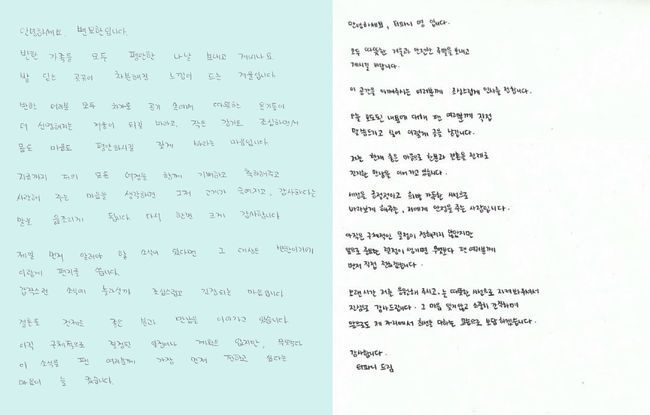 안녕하세요. 변요한입니다.
반한 가족들 모두 평안한 나날 보내고 계시나요
발 딛는 공기가 차분해진 느낌이 드는 겨울입니다
반한 여러분 모두 차가운 공기 속에서 따뜻한 온기들이
더 선명해지는 겨울이 되길 바라고, 작은 감기도 조심하면서
몸도 마음도 평안하시길 깊게 바라는 마음입니다
지금까지 저의 모든 여정을 함께 기뻐하고 축하해주고
사랑해 주는 마음을 생각하면 그저 고개가 숙여지고, 감사하다는
말을 읊조리게 됩니다 다시 한번 크게 감사합니다
제일 먼저 알려야 할 소식이 있다면 그 대상은 반한이기에
이렇게 편지를 씁니다.
갑작스런 소식에 놀라실까 조심스럽고 긴장되는 마음입니다
결혼을 전제로 좋은 분과 만남을 이어가고 있습니다.
아직 구체적으로 결정된 일정이나 계획은 없지만, 무엇보다
이 소식을 팬 여러분께 가장 먼저 전하고 싶다는
마음이 늘 컸습니다.
안녕하세요, 티파니 영 입니다.
모두 따뜻한 겨울과 안전한 주말을 보내고
계시길 바랍니다.
이 공간을 아껴주시는 여러분께 조심스럽게 인사를 전합니다.
오늘 보도된 내용에 대해 팬 여러분께 직접
말씀드리고 싶어 이렇게 글을 남깁니다.
저는 현재 좋은 마음으로 한분과 결혼을 전제로
진지한 만남을 이어가고 있습니다.
세상을 긍정적이고 희망 가득한 시선으로
바라보게 해주는, 저에게 안정을 주는 사람입니다.
아직은 구체적인 일정이 정해지지 않았지만
앞으로 중요한 결정이 있기엔 무엇보다 팬 여러분께
먼저 직접 전하겠습니다.
오랜 시간 저를 응원해 주시고, 늘 따뜻한 시선으로 지켜봐주셔서
진심으로 감사드립니다. 그 마음 잊지않고 소중히 간직하며
앞으로도 제 자리에서 최선을 다하는 모습으로 보답하겠습니다.
감사합니다.
티파니 드림